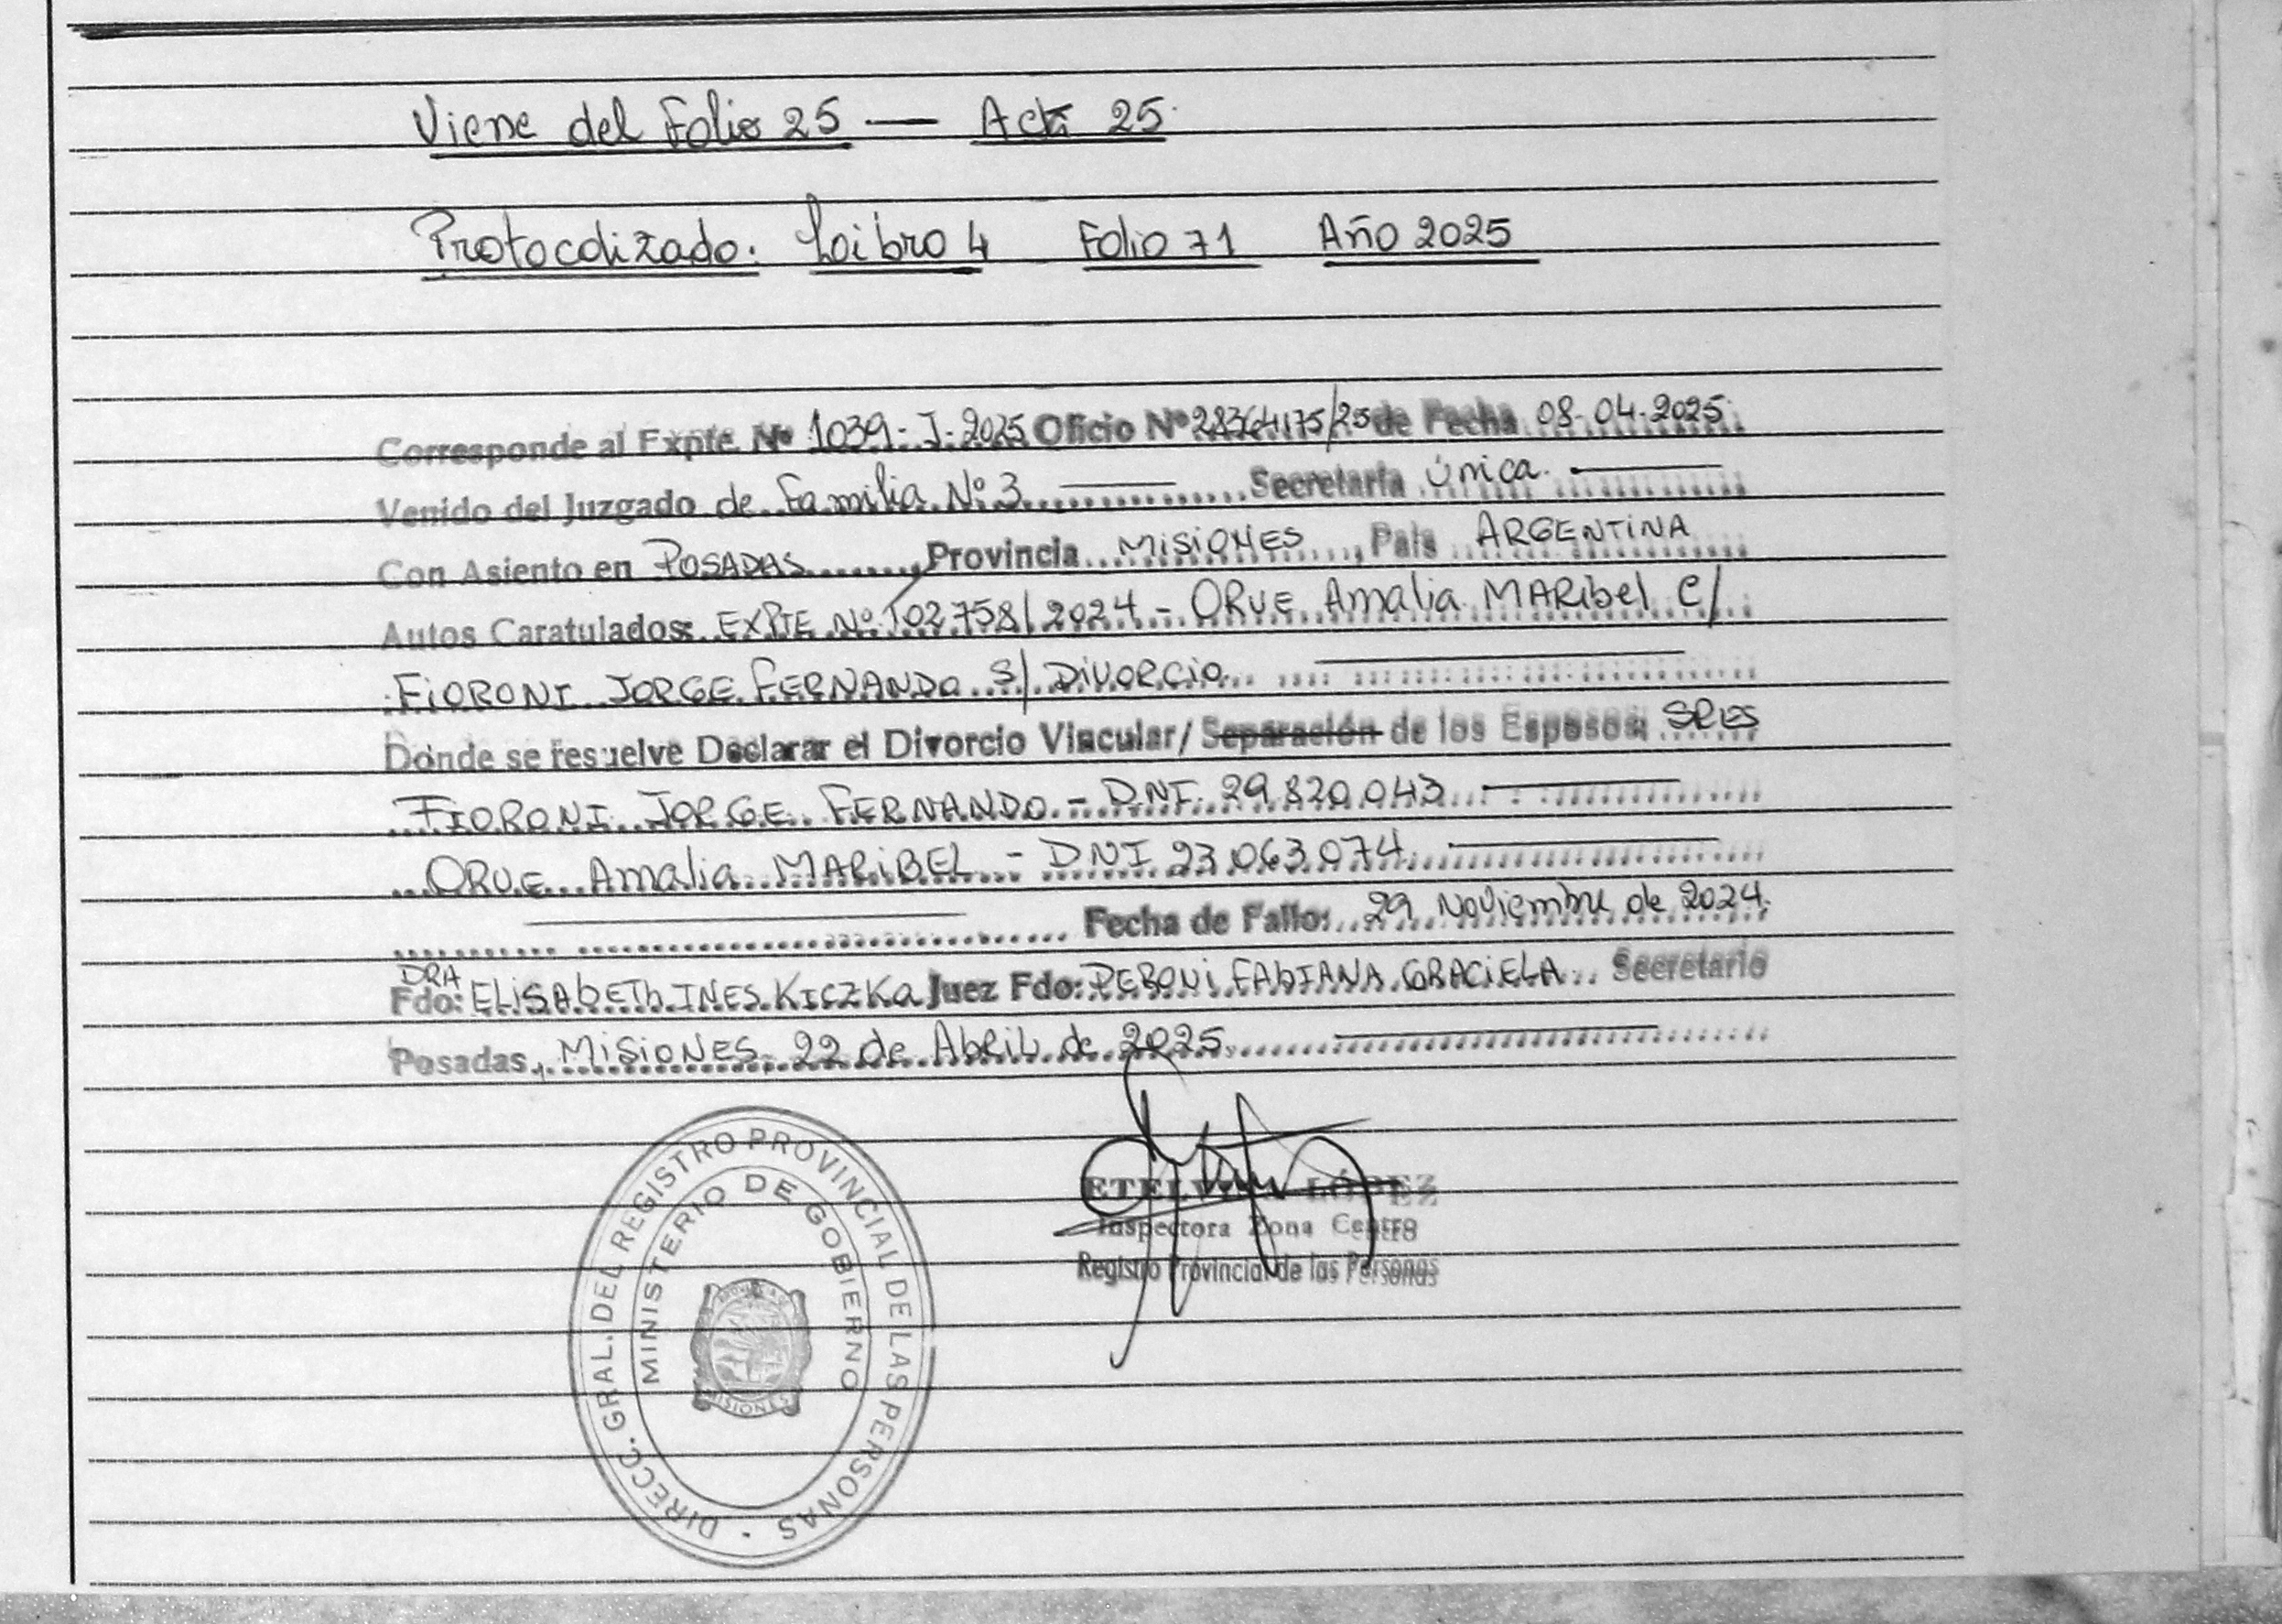 Viene del Folio 25 — Acta 25
Protocolizado: Libro 4 Folio 71 Año 2025
Corresponde al Expte. Nº 1039-J-2025 Oficio Nº 28364175/25 de Fecha 08-04-2025
Venido del Juzgado de Familia Nº 3 Secretaria única.
Con Asiento en POSADAS, Provincia MISIONES, Pais ARGENTINA
Autos Caratulados: EXPTE Nº 102758/2024 - ORUE Amalia MARibel C/
FIORONI JORGE FERNANDO S/ DIVORCIO
Donde se resuelve Declarar el Divorcio Vincular/ Separación de los Esposos: SRES
FIORONI JORGE FERNANDO - DNI 29.820.043
ORUE Amalia MARIBEL - DNI 23.063.074
Fecha de Fallo: 29 Noviembre de 2024.
DRA
Fdo: ELISAbETh INES KICZKA Juez Fdo: PERONI FAbIANA GRACIELA Secretario
Posadas, MISIONES 22 de Abril de 2025
DIRECC. GRAL. DEL REGISTRO PROVINCIAL DE LAS PERSONAS
MINISTERIO DE GOBIERNO
MISIONES
LÓPEZ
Inspectora Zona Centro
Registro Provincial de las Personas